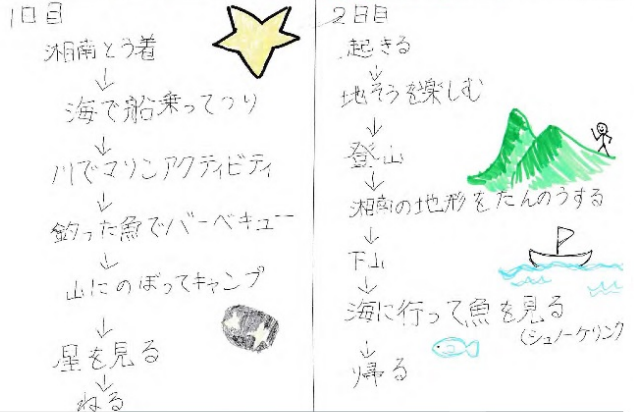 1日目
湘南とう着
↓
海で船乗ってつり
↓
川でマリンアクティビティ
↓
釣った魚でバーベキュー
↓
山にのぼってキャンプ
↓
星を見る
↓
ねる
2日目
起きる
↓
地そうを楽しむ
↓
登山
↓
湘南の地形をたんのうする
↓
下山
↓
海に行って魚を見る
(シュノーケリング
↓
帰る